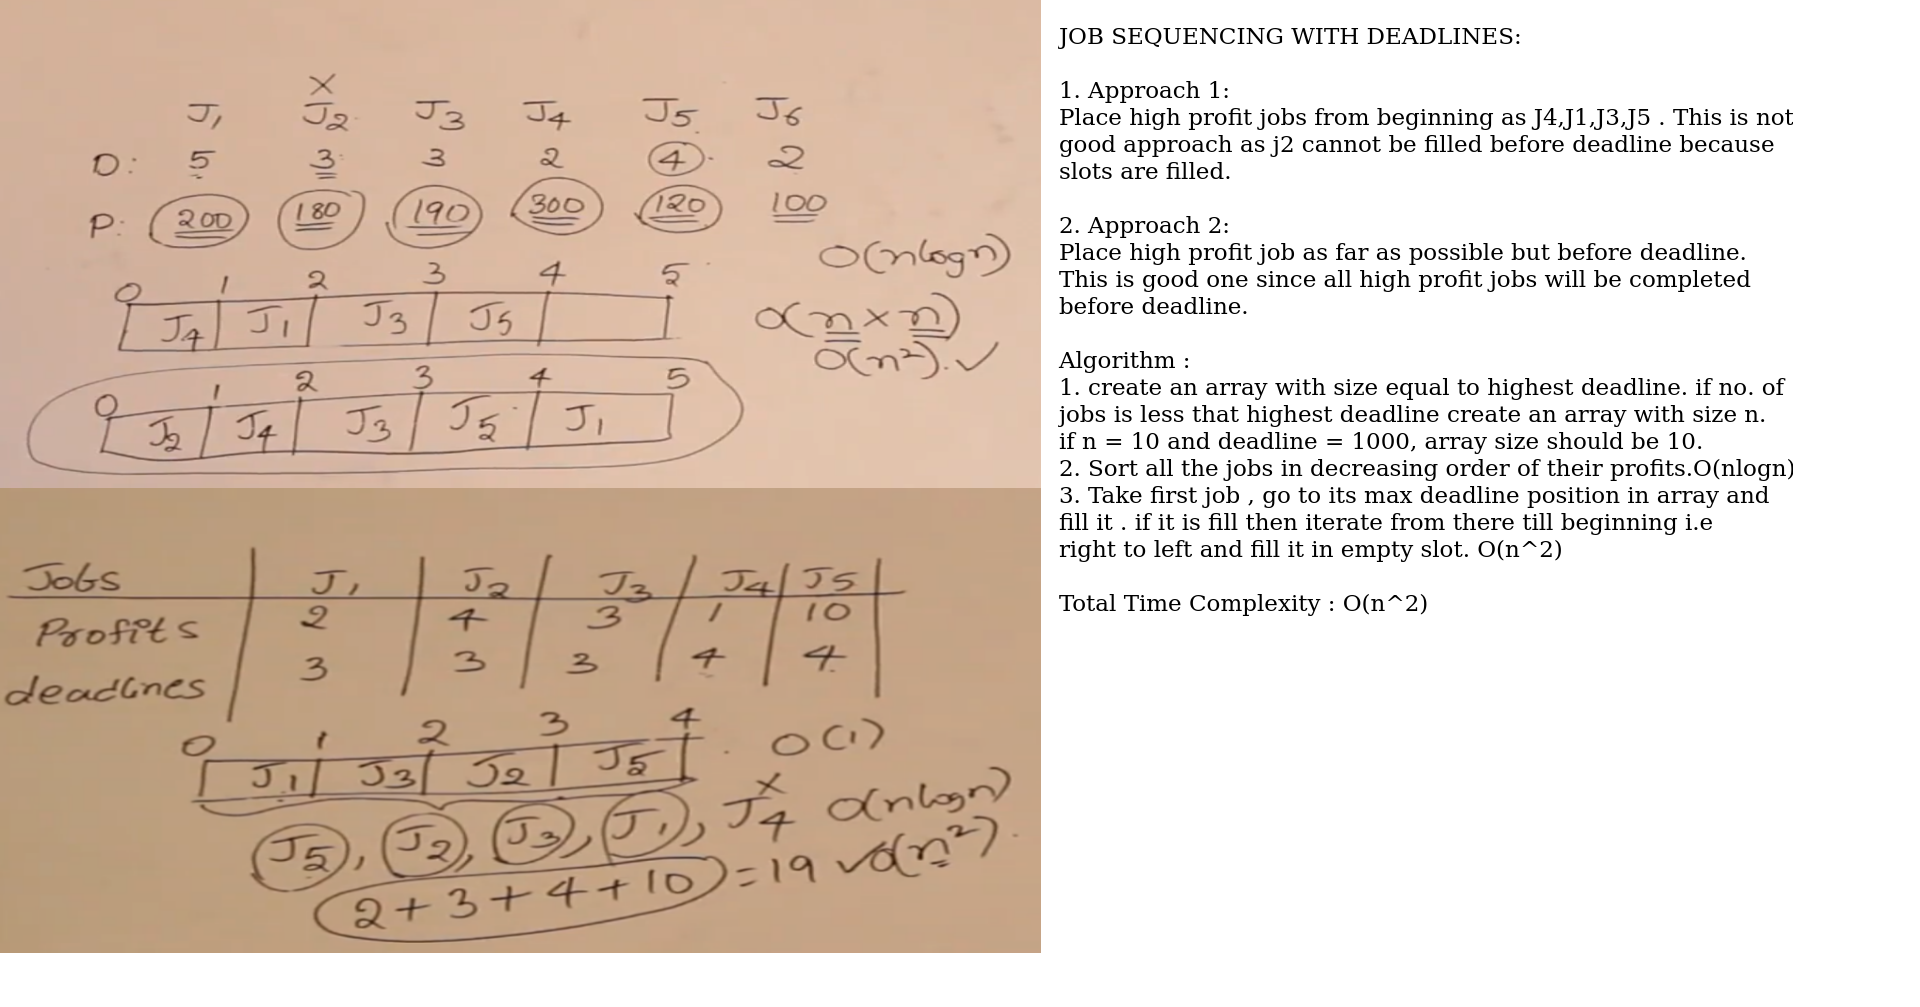 ×
J1 J2 J3 J4 J5 J6
D: 5 3 3 2 4 2
P: 200 180 190 300 120 100
O(nlogn)
0 1 2 3 4 5
J4 J1 J3 J5
O(n×n)
O(n²). ✓
0 1 2 3 4 5
J2 J4 J3 J5 J1
Jobs J1 J2 J3 J4 J5
Profits 2 4 3 1 10
deadlines 3 3 3 4 4
0 1 2 3 4
J1 J3 J2 J5
O(1)
×
J5, J2, J3, J1, J4 O(nlogn)
2+3+4+10 = 19 ✓ O(n²).
JOB SEQUENCING WITH DEADLINES:
1. Approach 1:
Place high profit jobs from beginning as J4,J1,J3,J5 . This is not
good approach as j2 cannot be filled before deadline because
slots are filled.
2. Approach 2:
Place high profit job as far as possible but before deadline.
This is good one since all high profit jobs will be completed
before deadline.
Algorithm :
1. create an array with size equal to highest deadline. if no. of
jobs is less that highest deadline create an array with size n.
if n = 10 and deadline = 1000, array size should be 10.
2. Sort all the jobs in decreasing order of their profits.O(nlogn)
3. Take first job , go to its max deadline position in array and
fill it . if it is fill then iterate from there till beginning i.e
right to left and fill it in empty slot. O(n^2)
Total Time Complexity : O(n^2)